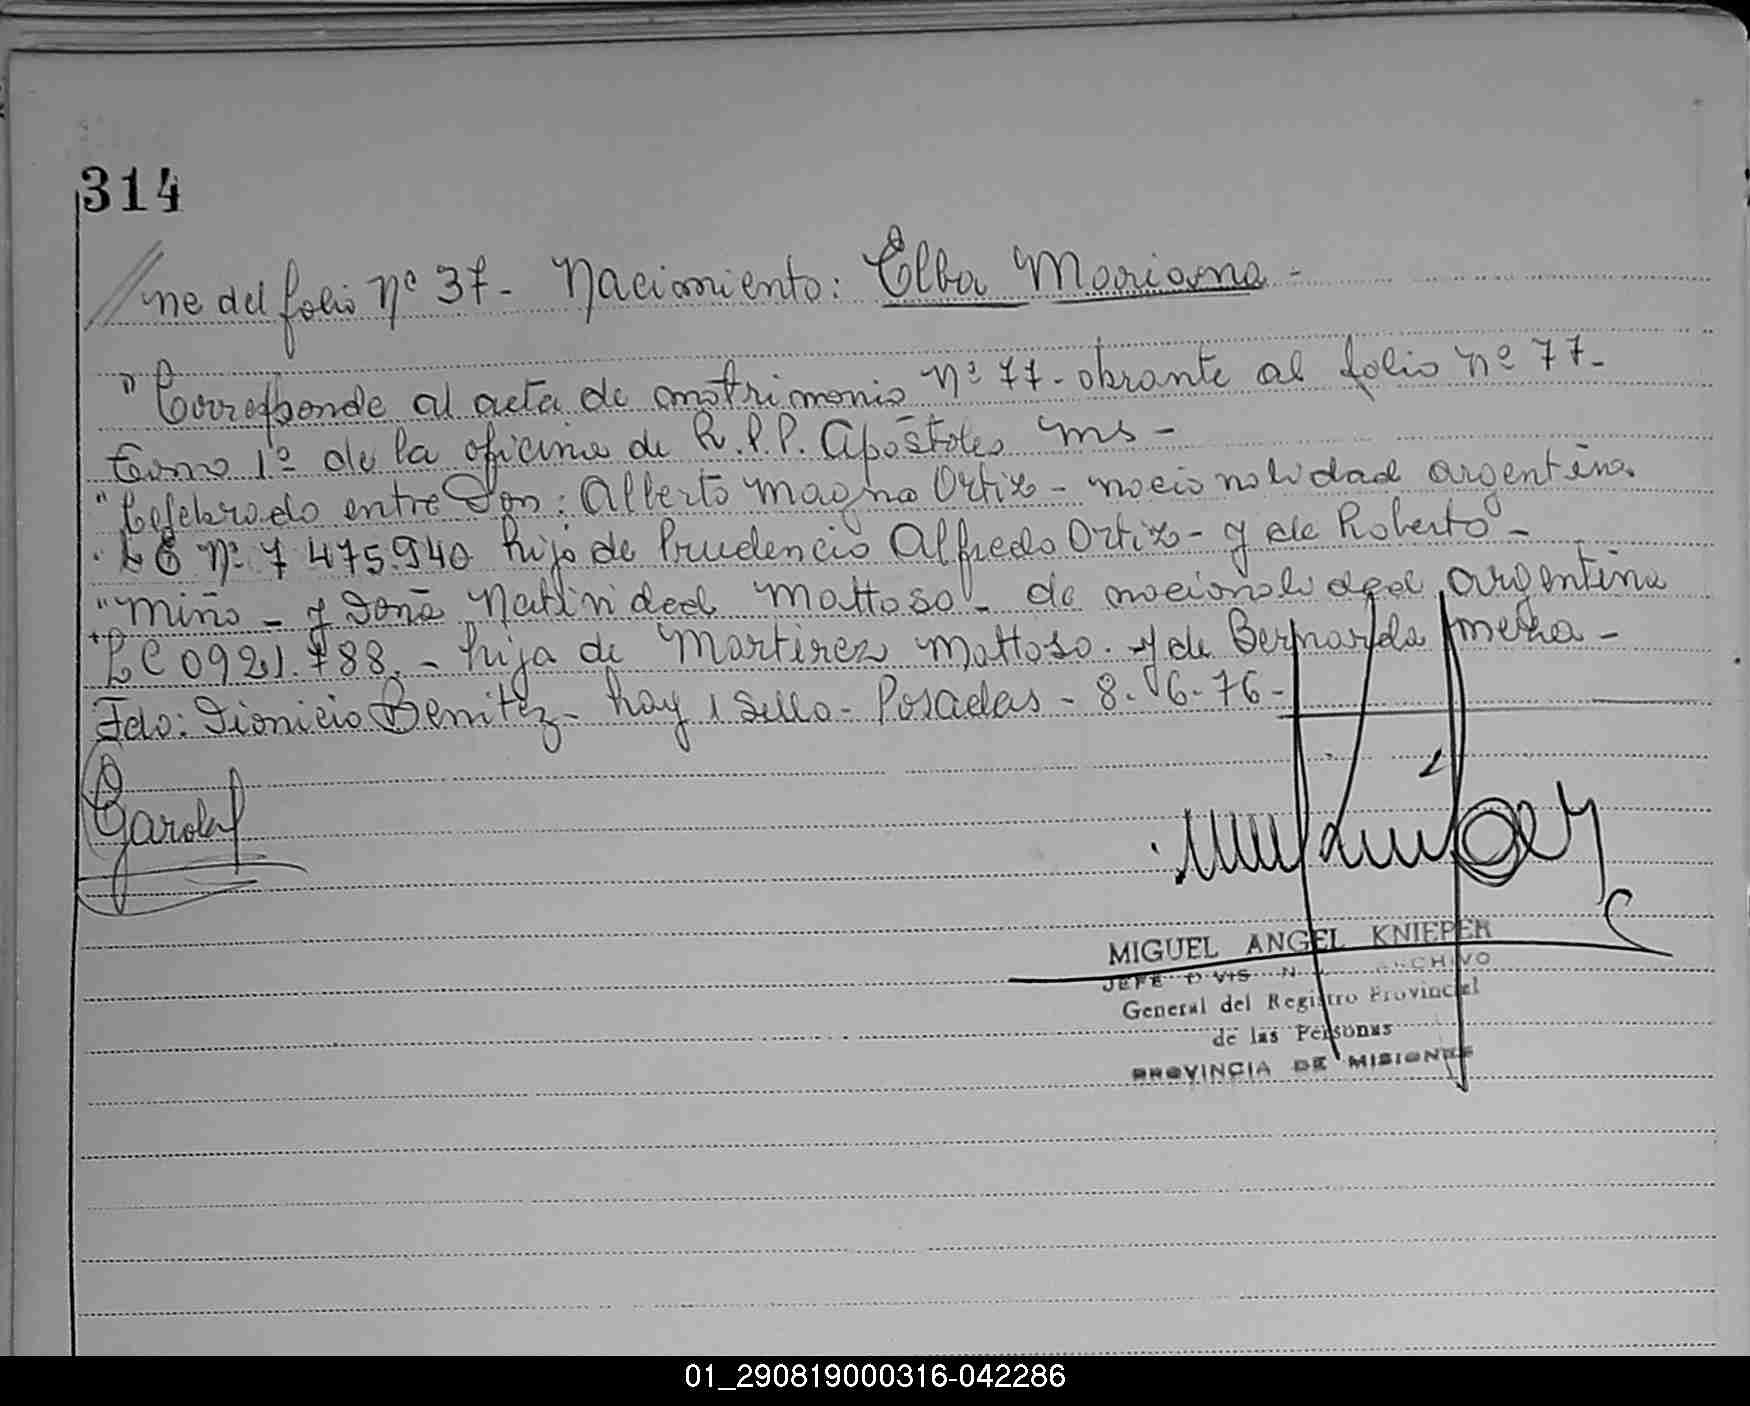 314
//ne del folio nº 37- Nacimiento: Elba Mariana-
"Corresponde al acta de matrimonio nº 77- obrante al folio nº 77-
tomo 1º de la oficina de R.P.P. Apóstoles Ms-
"Celebrado entre Don: Alberto Magno Ortiz- nacionalidad argentina
"LE Nº 7 475.940 hijo de Prudencio Alfredo Ortiz- y de Roberto-
"Miño- y Doña Natividad Mattoso- de nacionalidad argentina
"LC 0921.788.- hija de Martirez Mattoso. y de Bernarda Meza-
Fdo: Dionicio Benitez- hay 1 sello- Posadas- 8-6-76-
MIGUEL ANGEL KNIEPER
JEFE DIVISION ARCHIVO
General del Registro Provincial
de las Personas
PROVINCIA DE MISIONES
01_290819000316-042286